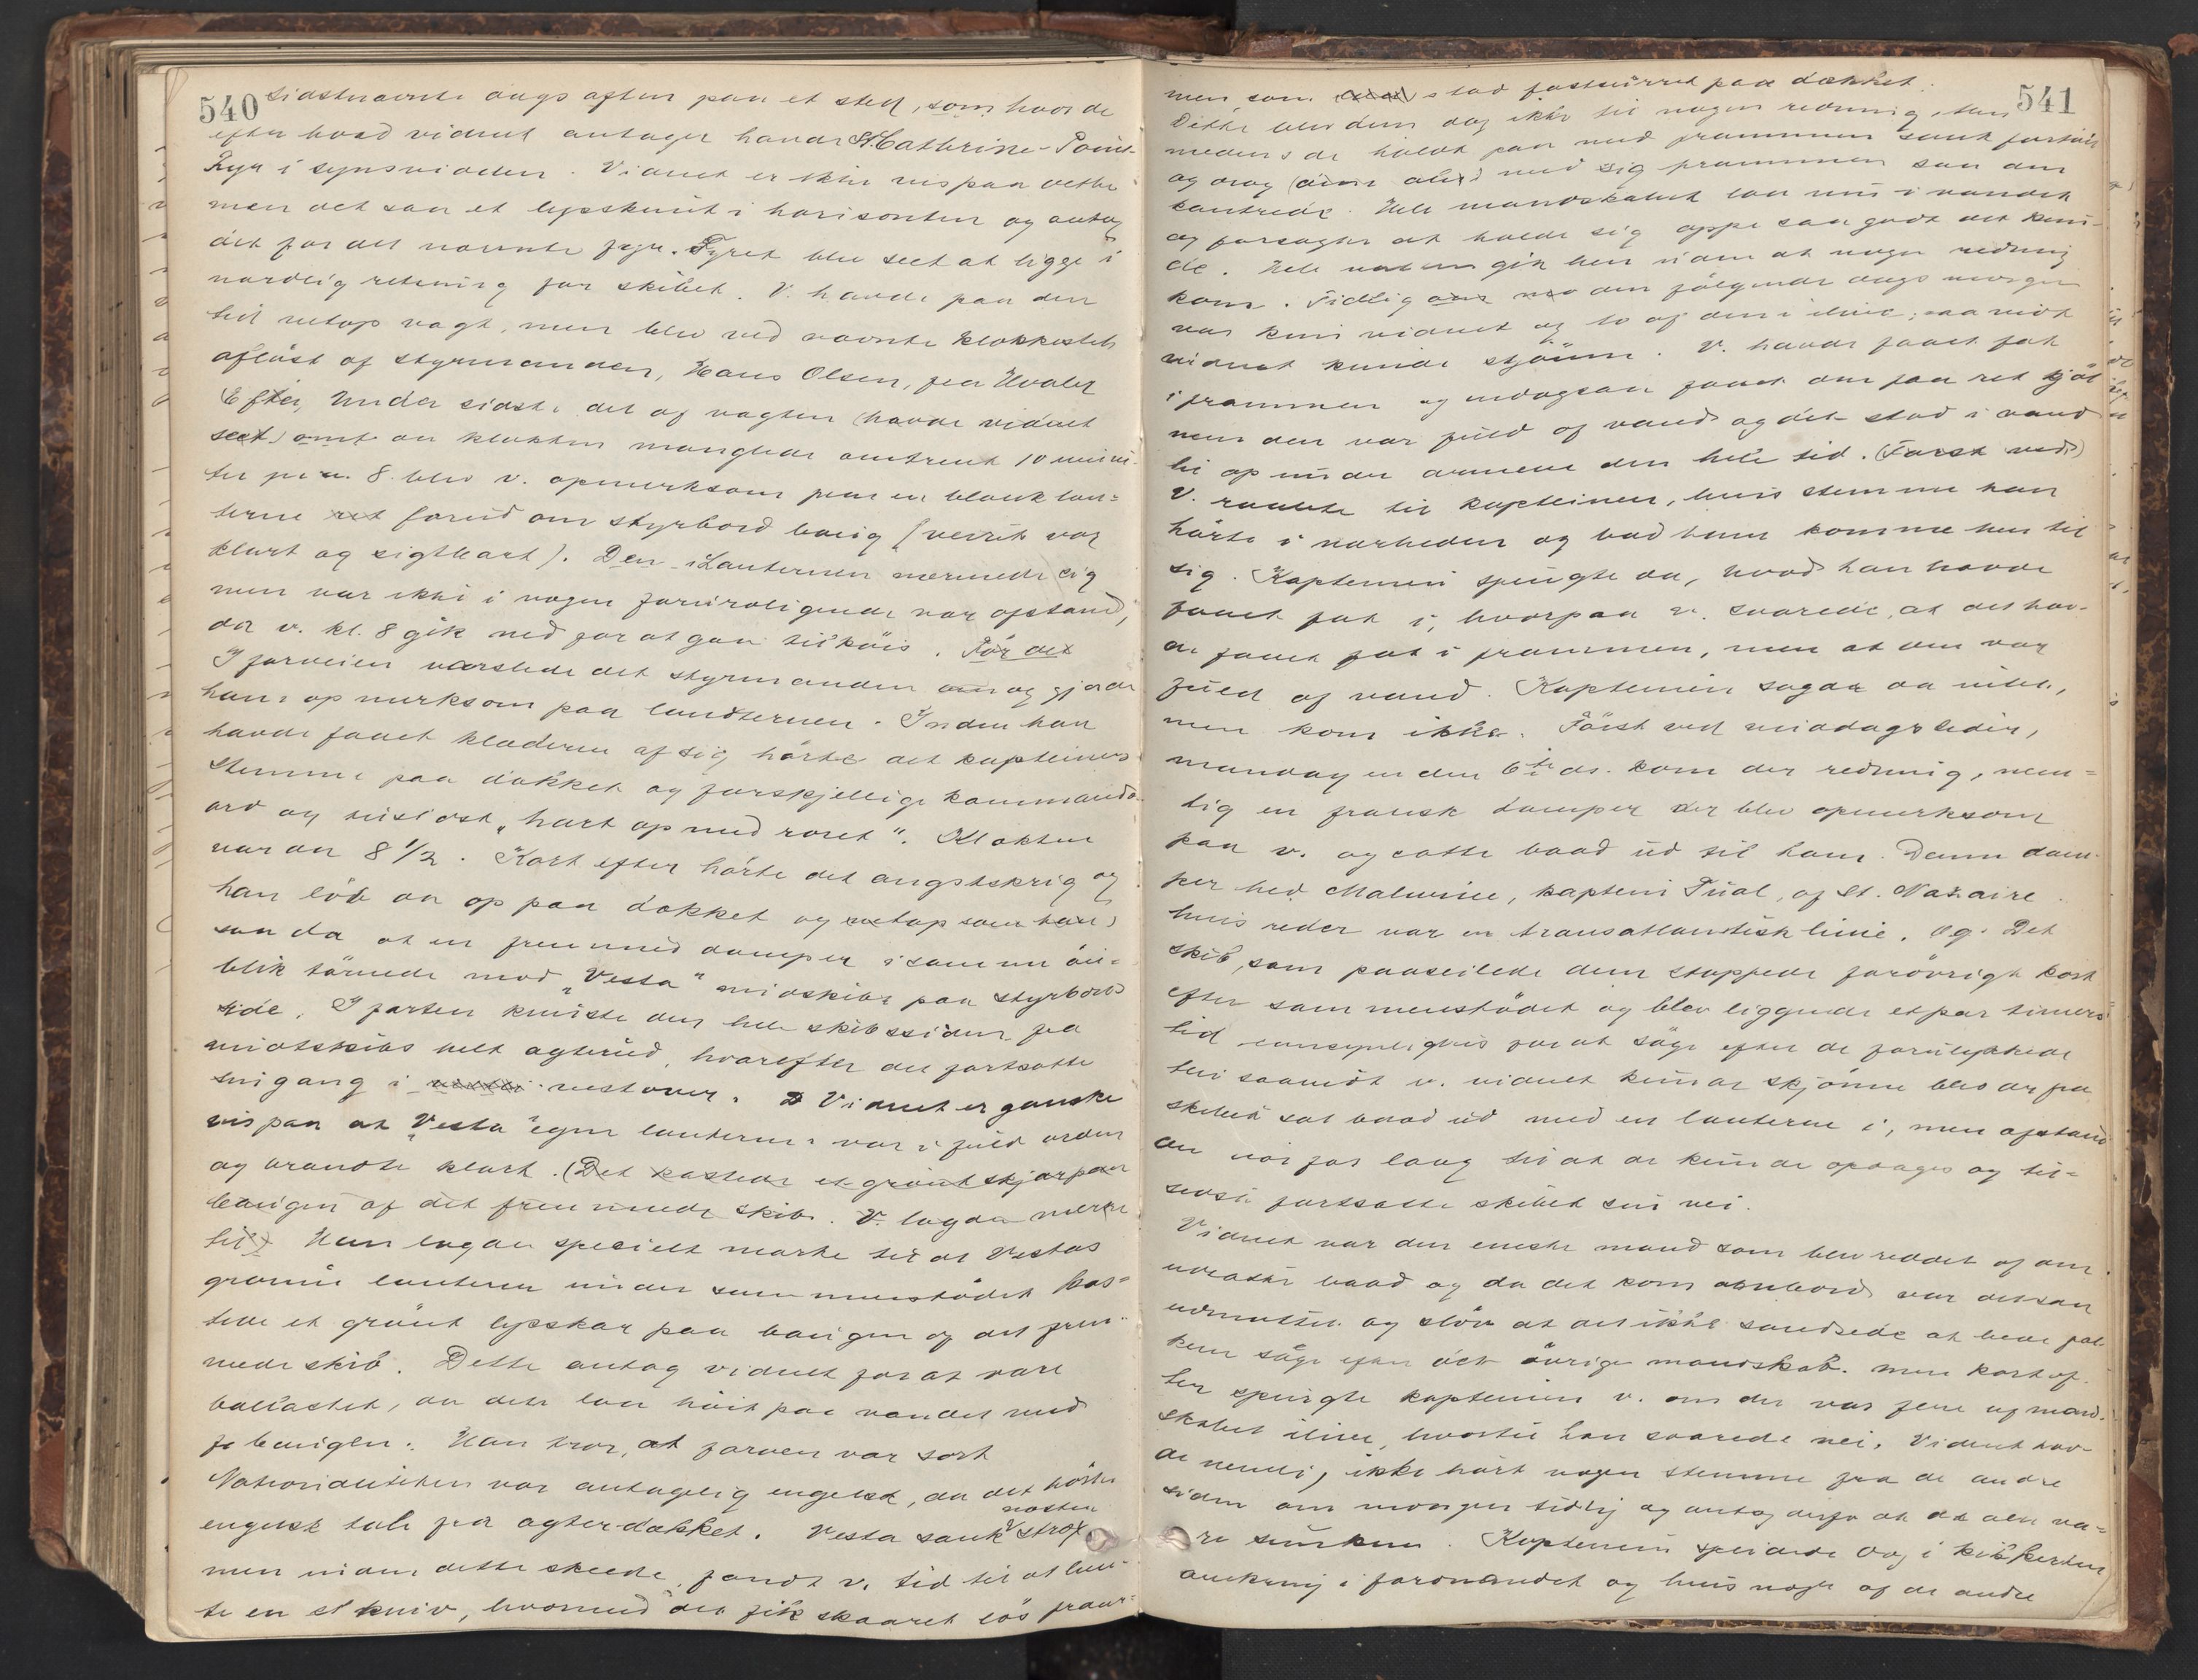 540
sidstnævnte dags aften paa et sted, som hvor de
efter hvad vidnet antager havde St Cathrine-Point-
Fyr i synsvidden. Vidnet er ikke vis paa dette
men det saa et lysskint i horisonten og antog
det for det nævnte fyr. Fyret blev seet at ligge i
nordlig retning for skibet. V. havde paa den
tid netop vagt, men blev ved nævnte klokkeslet
afløst af styrmanden, Hans Olsen, fra Hvaler
Efter, Under sidste del af vagten (havde vidnet
seet) omt da klokken manglede omtrent 10 minu-
ter paa 8 blev v. opmerksom paa en blank lan=
terne ret forud om styrbord baug (veiret var
klart og sigtbart). Den Lanternen nærmede sig
men var ikke i nogen foruroligende nær afstand,
da v. kl. 8 gik ned for at gaa tilköis. Før det
I forveien varslede det styrmanden om og gjorde
ham opmerksom paa lanternen. Indem han
havde faaet klæderne af sig hörte det kapteinens
stemme paa dækket og forskjellige kommando-
ord og tilsidst "hart op med roret". Klokken
var da 8 1/2. Kort efter hörte det angstskrig og
han löb da op paa dækket og netop som han
saa da at en fremmed damper i samme öie=
blik törnede mod "Vesta" midskibs paa styrbords
side. I farten knuste den hele skibssiden fra
midtskibs helt agterud, hvorefter den fortsatte
sin gang i vestover. Vidnet er ganske
vis paa at "Vesta" egne lanterner var i fuld orden
og brandte klart. (Det kastede et grönt skjær paa
baugen af det fremmede skib. V. lagde merke
til) Han lagde specielt mærke til at Vestas
grönne lanterne under sammenstödet kas=
tede et grönt lysskær paa baugen af det frem-
mede skib. Dette antog vidnet for at være
ballastet, da dets laa höit paa vandet med
fo baugen. Han tror, at farven var sort
Nationaliteten var antagelig engelsk, da det hörtes
engelsk tale fra agterdækket. Vesta sank næsten strax
men inden dette skeede, fandt v. tid til at hen-
te en st kniv, hvormed det fik skaaret lös fraar-
541
men, som stod fastsurret paa dækket.
Dette blev dem dog ikke til nogen redning, thi
medens de holdt paa med prammen sank fartöiet
og drog (dem alle) med sig prammen saa den
kantrede. Hele mandskabet laa nu i vandet
og forsøgte at holde sig oppe saa godt det kun-
de. Hele natten gik hen uden at nogen redning
kom. Tidlig den følgende dags morgen
var kun vidnet og to af dem i live; saavidt
vidnet kunde skjönne. V. havde faaet fat
i prammen og endogsaa faaet den paa ret kjöl
men den var fuld af vand og det stod i vand
til op under armene den hele tid. (Først ved)
V. raabte til kapteinen, hvis stemme han
hörte i nærheden og bad ham komme hen til
sig. Kapteinen spurgte da, hvad han havde
faaet fat i, hvorpaa v. svarede, at det hav-
de faaet fat i prammen, men at den var
fuld af vand. Kapteinen sagde da intet,
men kom ikke. Först ved middagstider,
mandag en den 6te ds. kom der redning, nem=
lig en fransk damper der blev opmerksom
paa v. og satte baad ud til ham. Denne dam-
per hed Malwine, kaptein Tual, af St. Nazaire.
hvis reder var en transatlantisk linie. Og. Det
skib, som paaseilede dem stoppede forövrigt kort
efter sammenstödet og blev liggende et par timers
tid sansynligvis for at söge efter de forulykkede
thi saavidt v. vidnet kunde skjönne blev der fra
skibet sat baad ud med en lanterne i, men afstand
en var for lang til at de kunde opdages og til-
sidst fortsatte skibet sin vei.
Vidnet var den eneste mand som blev reddet af den
udsatte baad og da det kom ombord var det saa
udmattet og slöv at det ikke sandsede at bede fol-
kene söge efter det övrige mandskab. men kort ef-
ter spurgte kapteinen v. om der var flere af mand-
skabet ilive, hvortil han svarede nei. Vidnet hav-
de nemlig ikke hört nogen stemme fra de andre
siden om morgen tidlig og antog derfor at de alle va=
re sunkne. Kapteinen speidede dog i kikkerten
omkring i farvandet og hvis nogen af de andre